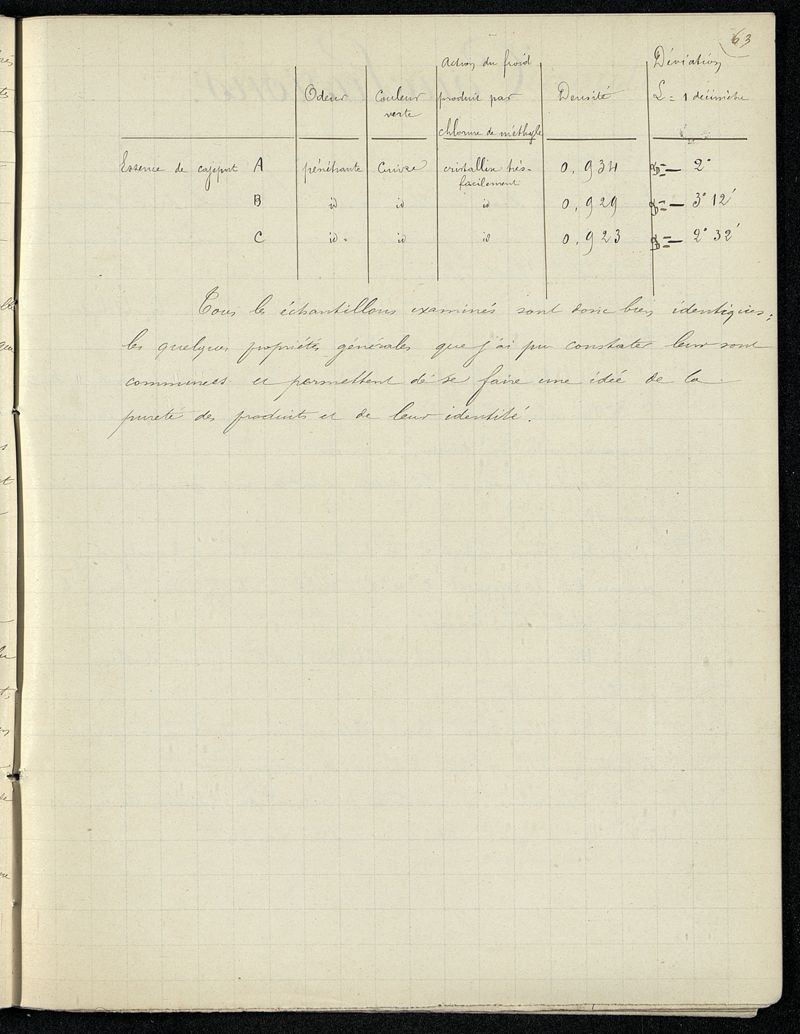 63
Action du froid Déviation
Odeur Couleur produit par Densité L = 1 décimètre
verte
chlorure de méthyle
Essence de cajeput A pénétrante Cuivre cristallise très- 0,934 α = - 2°
facilement
B id id id 0,929 α = - 3° 12'
C id. id id 0,923 α = - 2° 32'
Tous les échantillons examinés sont donc bien identiques;
les quelques propriétés générales que j'ai pu constater leur sont
communes et permettent de se faire une idée de la
pureté des produits et de leur identité.